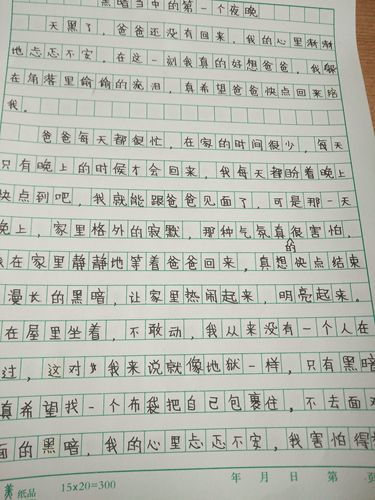 黑暗当中的第一个夜晚
天黑了，爸爸还没有回来，我的心里渐渐
地忐忑不安，在这一刻我真的好想爸爸，我躲
在角落里偷偷的流泪，真希望爸爸快点回来陪
我。
爸爸每天都很忙，在家的时间很少，每天
只有晚上的时候才会回来，我每天都盼着晚上
快点到吧，我就能跟爸爸见面了，可是那一天
晚上，家里格外的寂默，那种气氛真的很害怕，
在家里静静地等着爸爸回来，真想快点结束
漫长的黑暗，让家里热闹起来，明亮起来。
在屋里坐着，不敢动，我从来没有一个人在
过，这对我来说就像地狱一样，只有黑暗
真希望找一个布袋把自己包裹住，不去面对
面的黑暗，我的心里忐忑不安，我害怕得
纸品 15x20=300 年 月 日 第 页